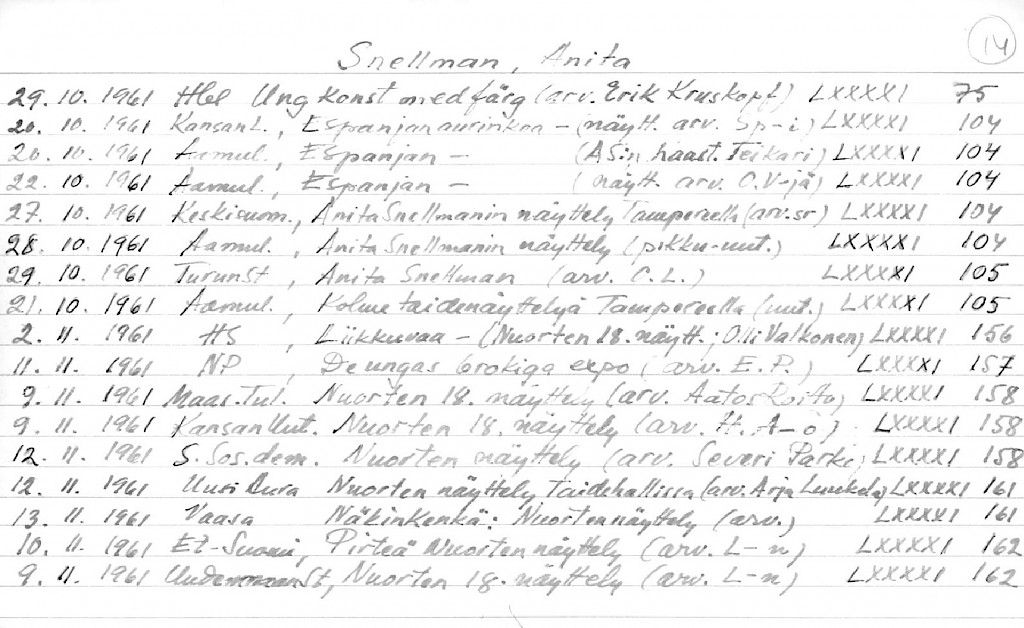 14
Snellman, Anita
29. 10. 1961 Hbl Ung konst med färg (arv. Erik Kruskopf) LXXXXI 75
20. 10. 1961 Kansan L., Espanjan aurinkoa - (näytt. arv. Sp-i) LXXXXI 104
20. 10. 1961 Aamul., Espanjan - (AS:n haast. Teikari) LXXXXI 104
22. 10. 1961 Aamul., Espanjan - (näytt. arv. O.V-jä) LXXXXI 104
27. 10. 1961 Keskisuom., Anita Snellmanin näyttely Tampereella (arv. sr) LXXXXI 104
28. 10. 1961 Aamul., Anita Snellmanin näyttely (pikku-uut.) LXXXXI 104
29. 10. 1961 Turun St, Anita Snellman (arv. O.L.) LXXXXI 105
21. 10. 1961 Aamul., Kolme taidenäyttelyä Tampereella (uut.) LXXXXI 105
2. 11. 1961 HS, Liikkuvaa - (Nuorten 18. näytt.; Olli Valkonen) LXXXXI 156
11. 11. 1961 NP, De ungas brokiga expo (arv. E.P.) LXXXXI 157
9. 11. 1961 Maas.Tul. Nuorten 18. näyttely (arv. Aatos Roito) LXXXXI 158
9. 11. 1961 Kansan Uut. Nuorten 18. näyttely (arv. H. A-ö) LXXXXI 158
12. 11. 1961 S. Sos.dem. Nuorten näyttely (arv. Severi Parko) LXXXXI 158
12. 11. 1961 Uusi Aura Nuorten näyttely Taidehallissa (arv. Arja Luukela) LXXXXI 161
13. 11. 1961 Vaasa Näkinkenkä: Nuorten näyttely (arv.) LXXXXI 161
10. 11. 1961 Et-Suomi, Pirteä Nuorten näyttely (arv. L-n) LXXXXI 162
9. 11. 1961 Uudenmaan St, Nuorten 18. näyttely (arv. L-n) LXXXXI 162